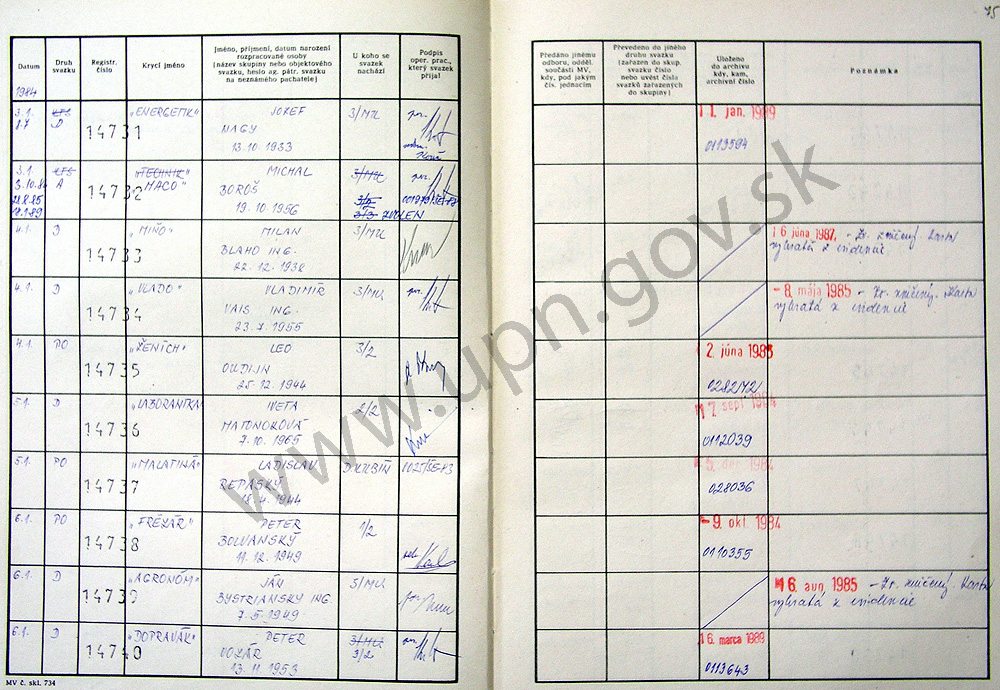 75
Datum
Druh svazku
Registr. číslo
Krycí jméno
Jméno, příjmení, datum narození rozpracované osoby (název skupiny nebo objektového svazku, heslo ag. pátr. svazku na neznámého pachatele)
U koho se svazek nachází
Podpis oper. prac., který svazek přijal
Předáno jinému odboru, odděl. součásti MV, kdy, pod jakým čís. jednacím
Převedeno do jiného druhu svazku (zařazen do skup. svazku číslo nebo uvést čísla svazků zařazených do skupiny)
Uloženo do archivu kdy, kam, archivní číslo
Poznámka
1984
3.1. KTS 14731 „ENERGETIK" JOZEF 3/MU per. 1. jan. 1989
8.7 D NAGY
13.10.1933 0113594
3.1 KTS 14732 „TECHNIK" MICHAL 3/MU per.
3.10.84 A „MACO" BOROŠ 3/2
21.8.85 19.10.1956 3/3 ZVOLEN
4.1. D 14733 „MIŇO" MILAN 3/MU 16. júna 1987. – Zv. zničený. Karta
BLAHO ING. vybratá z evidencie
22.12.1938
4.1. D 14734 „VLADO" VLADIMÍR 3/MU per. – 8. mája 1985 – Zv. zničený. Karta
VAIS ING. vybratá z evidencie
23.7.1955
4.1. PO 14735 „ŽENÍCH" LEO 3/2 12. júna 1985
OUDIJN
25.12.1944 0282172
5.1. D 14736 „LABORANTKA" IVETA 2/2 17. sept 1984
MATONOKOVÁ
7.10.1965 0112039
5.1. PO 14737 „MALATINÁ" LADISLAV – 5. dec 1984
REPASKÝ
18.4.1944 028036
6.1. PO 14738 „FRÉZÁR" PETER 1/2 – 9. okt 1984
BOLVANSKÝ
11.12.1949 0110355
6.1. D 14739 „AGRONÓM" JÁN 5/MU 16. aug. 1985 – Zv. zničený. Karta
BYSTRIANSKY ING. vybratá z evidencie
7.5.1949
6.1. D 14740 „DOPRAVÁK" PETER 3/MU per. 16. marca 1989
VOZÁR 3/2
13.11.1953 0113643
MV č. skl. 734
www.upn.gov.sk